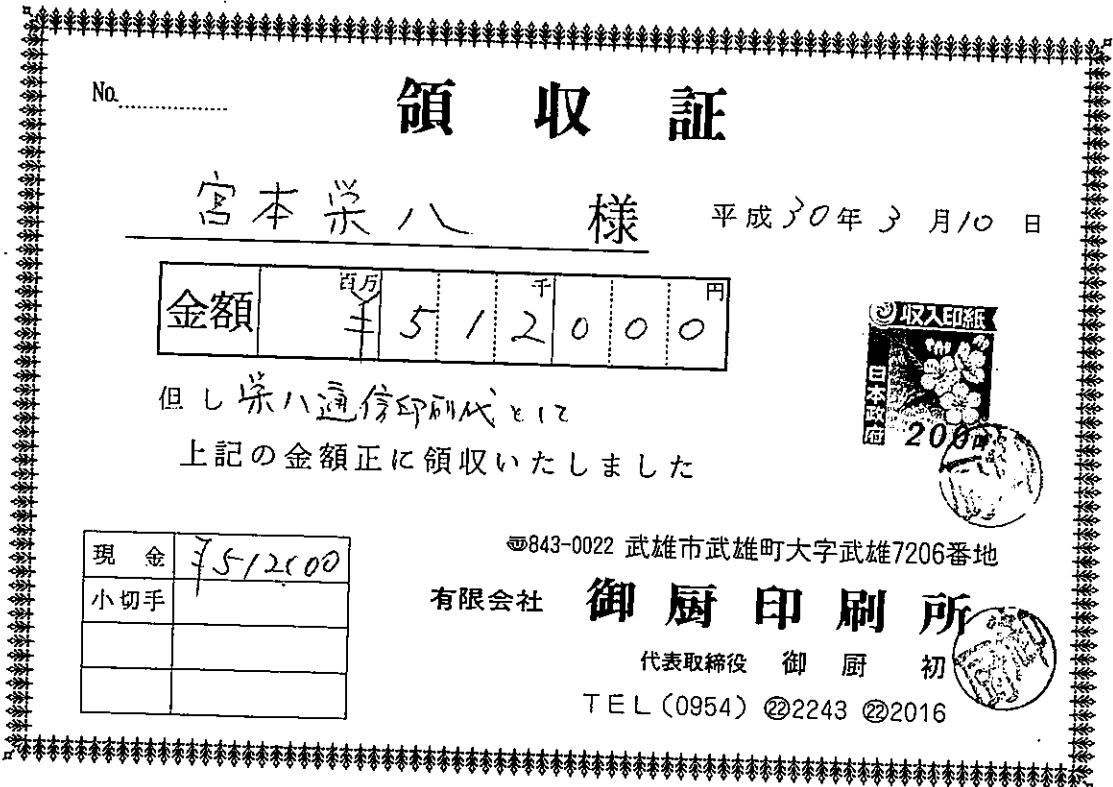 No.
領収証
宮本栄八 様 平成30年3月10日
金額 百万 千 円
¥512000
但し栄八通信印刷代として
上記の金額正に領収いたしました
収入印紙
日本政府
200円
現金 ¥512000
小切手
〒843-0022 武雄市武雄町大字武雄7206番地
有限会社 御厨印刷所
代表取締役 御厨 初
TEL(0954) ㉒2243 ㉒2016